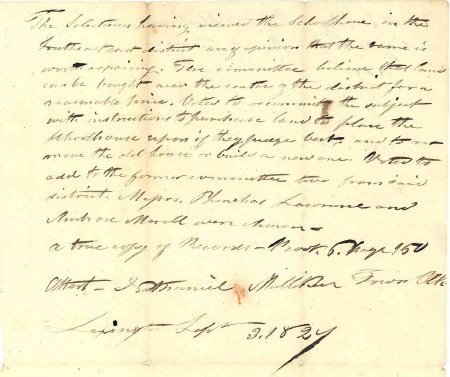 The Selectmen having viewed the Schoolhouse in the
South east district are of opinion that the same is
worth repairing. The committee believe that land
can be bought near the centre of the district for a
reasonable price. Voted to recommit the subject
with instructions to purchase land to place the
schoolhouse upon if they judge best, and to re-
move the old house or build a new one. Voted to
add to the former committee two from said
district. Messrs. Phinehas Lawrence and
Ambrose Morell were chosen—
a true copy of Records — 6. Page 150
Attest — Nathaniel Mulliken Town Clk
Lexington Sept 3. 1827